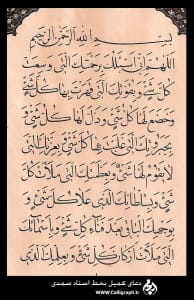 بِسْمِ اللهِ الرَّحْمٰنِ الرَّحِيمِ
اَللّٰهُمَّ اِنّى اَسْئَلُكَ بِرَحْمَتِكَ الَّتى وَسِعَتْ
كُلَّ شَىْءٍ وَ بِقُوَّتِكَ الَّتى قَهَرْتَ بِها كُلَّ شَىْءٍ
وَ خَضَعَ لَها كُلُّ شَىْءٍ وَ ذَلَّ لَها كُلُّ شَىْءٍ وَ
بِجَبَرُوتِكَ الَّتى غَلَبْتَ بِها كُلَّ شَىْءٍ وَ بِعِزَّتِكَ الَّتى
لا يَقُومُ لَها شَىْءٌ وَ بِعَظَمَتِكَ الَّتى مَلَأَتْ كُلَّ
شَىْءٍ وَ بِسُلْطانِكَ الَّذى عَلا كُلَّ شَىْءٍ وَ
بِوَجْهِكَ الْباقى بَعْدَ فَناءِ كُلِّ شَىْءٍ وَ بِاَسْمائِكَ
الَّتى مَلَأَتْ اَرْكانَ كُلِّ شَىْءٍ وَ بِعِلْمِكَ الَّذى
دعای کمیل بخط استاد صمدی
www.Calligraph.ir